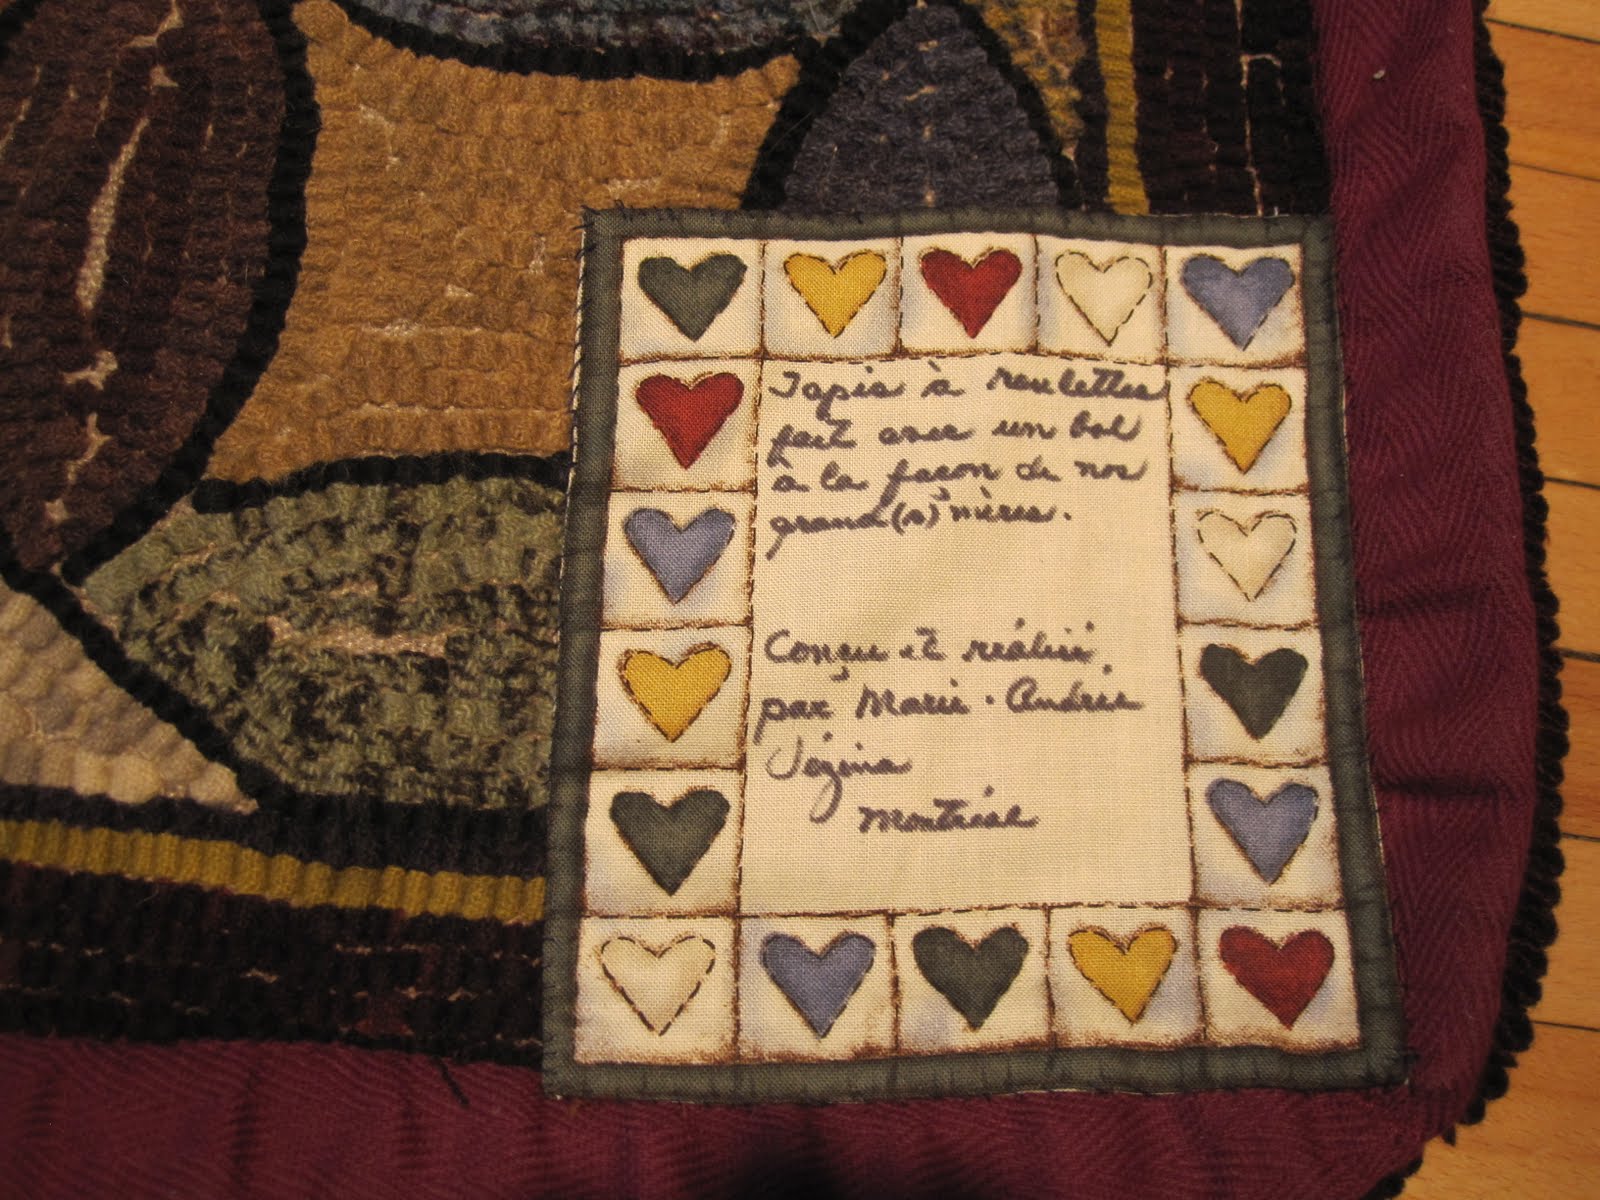 Tapis à roulettes
fait avec un bol
à la façon de nos
grand(s) mères.
Conçu et réalisé
par Marie-Andrée
Vézina
Montréal